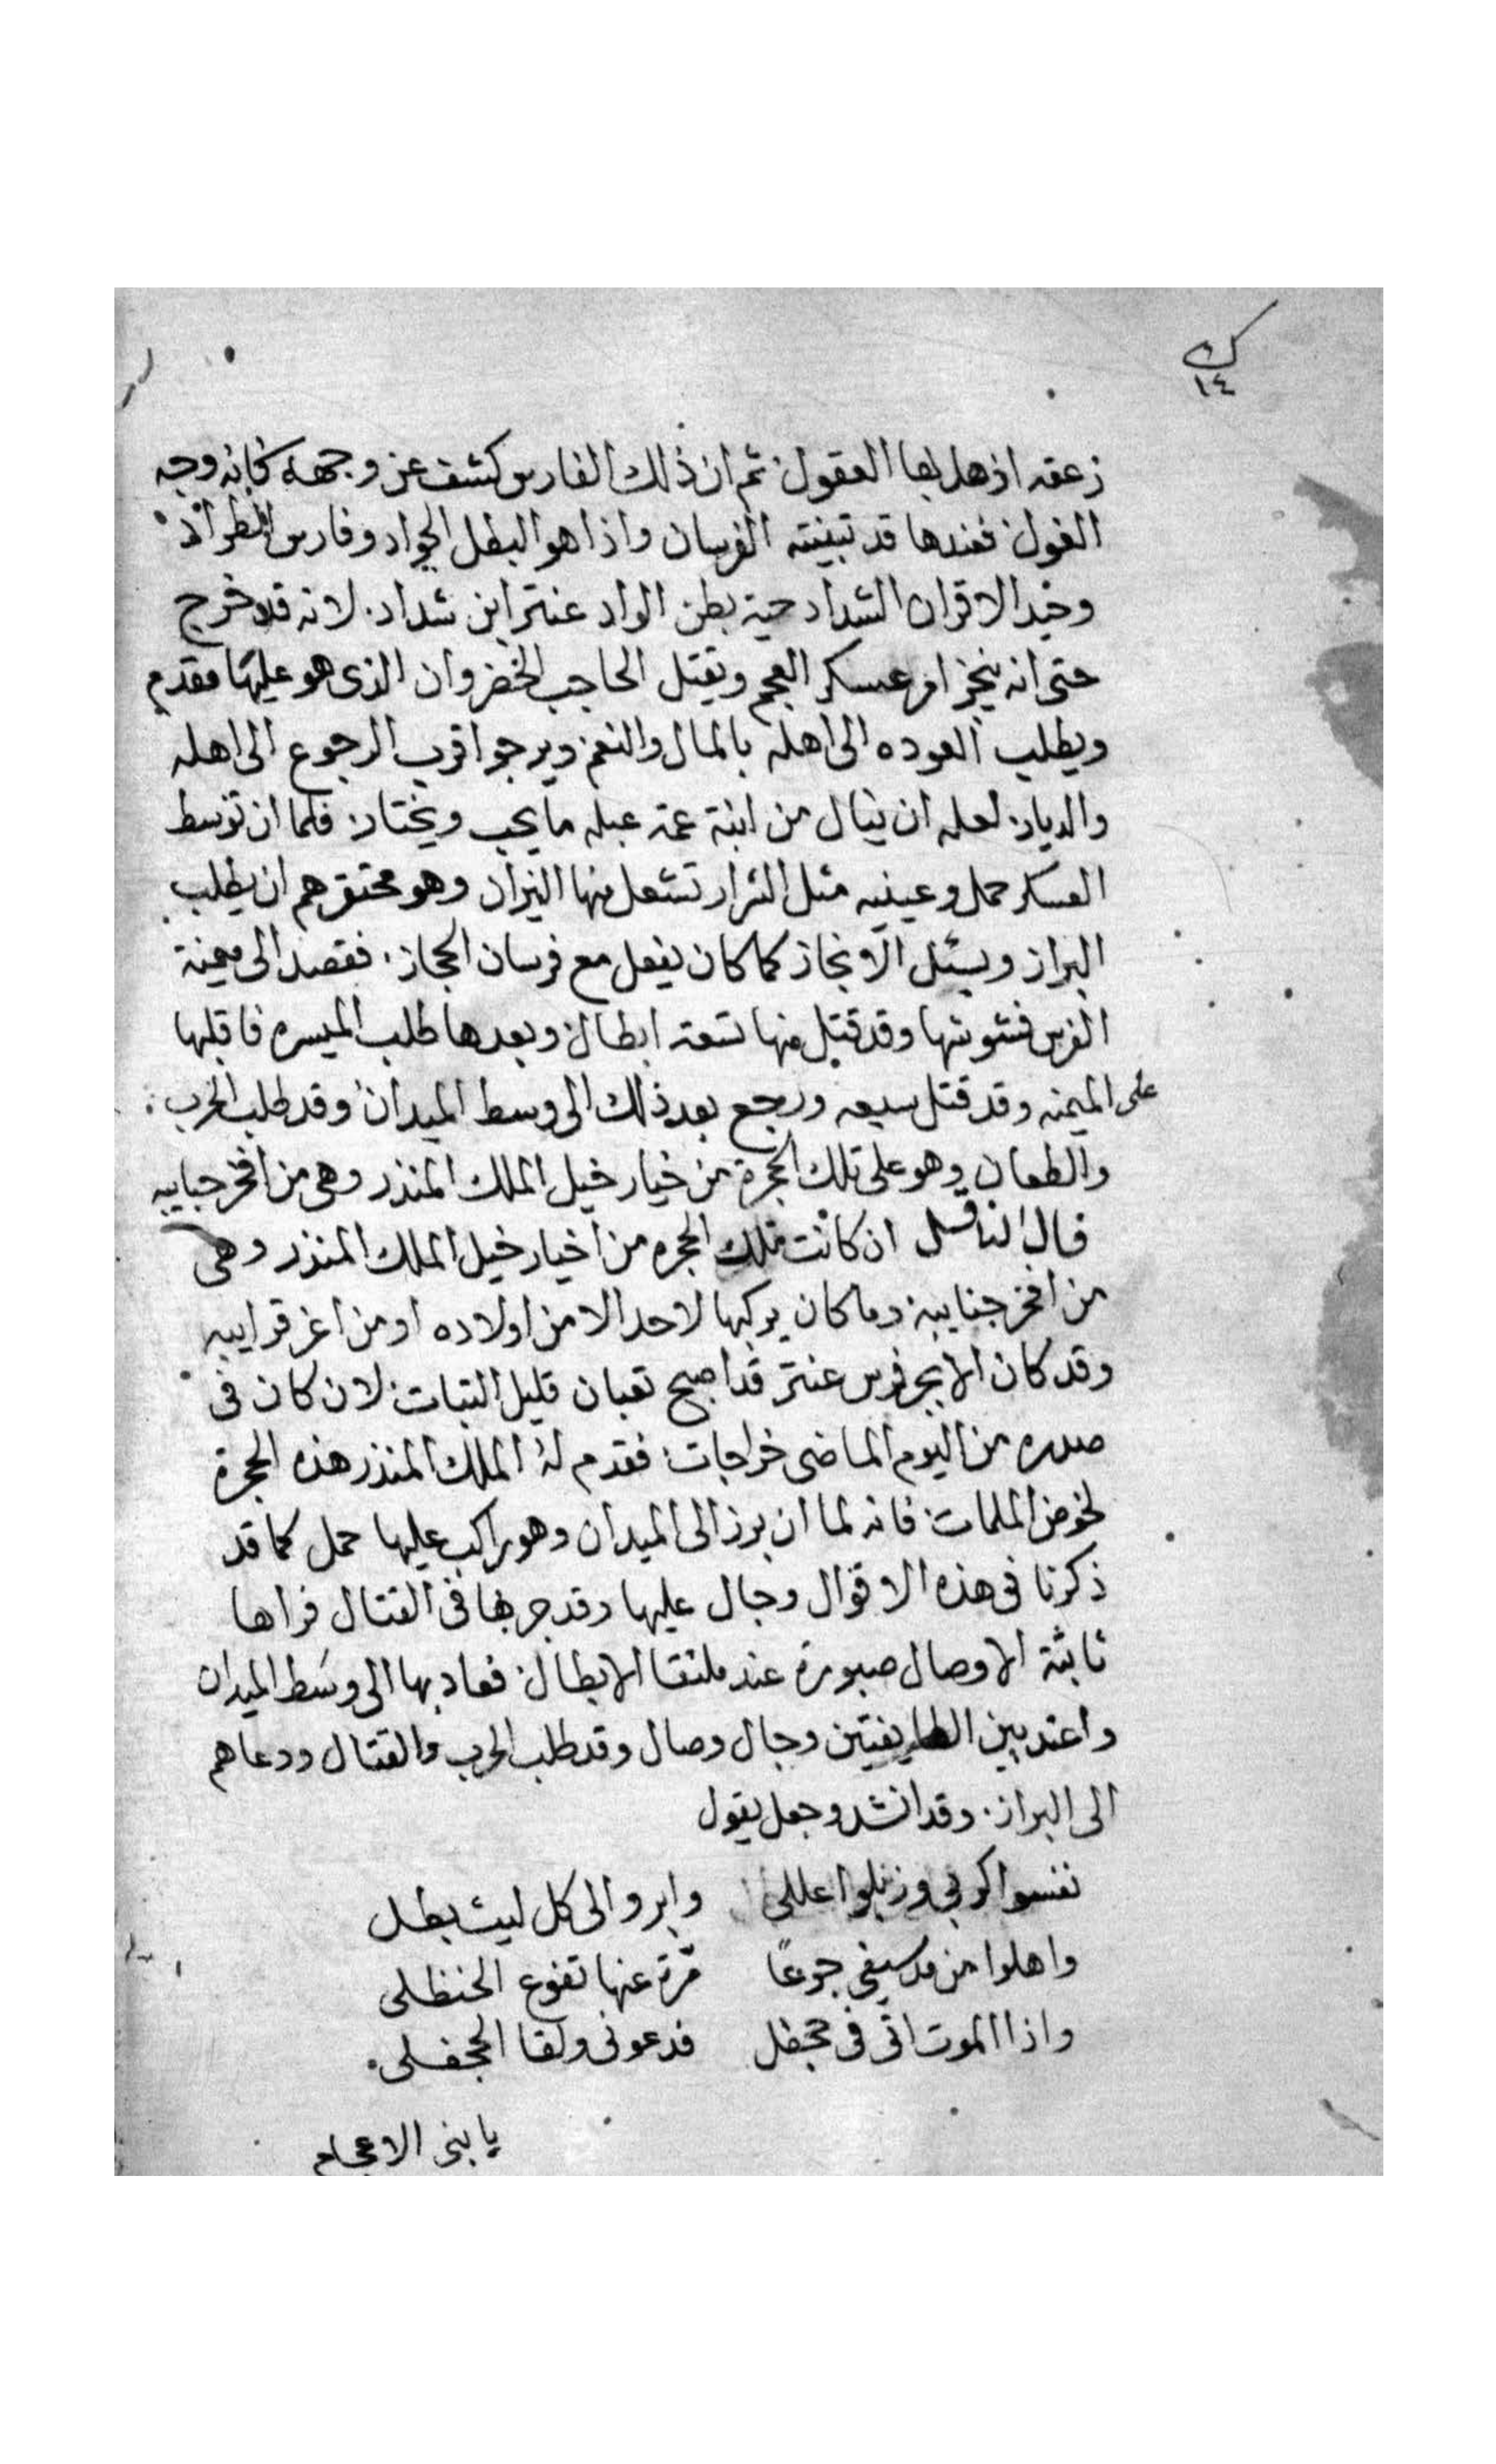 ك
١٤
زعقه اذهل بها العقول ثم ان ذلك الفارس كشف عن وجهه كانه وجه
الغول فعندها قد تبينته الفرسان واذا هو البطل الجواد وفارس الطراد
الاقران الشداد حية بطن الواد عنتر ابن شداد لانه قد خرج
حتى انه ينجز امر عسكر العجم ويقتل الحاجب الخضروان الذى هو عليها مقدم
ويطلب العوده الى اهله بالمال والنعم ويرجوا قرب الرجوع الى اهله
والديار لعله ان ينال من ابنة عمه عبله ما يحب ويختار فلما ان توسط
العسكر حمل وعينيه مثل الشرار تشعل منها النيران وهو محتقرهم ان يطلب
البراز ويسئل الانجاز كما كان يفعل مع فرسان الحجاز فقصد الى ميمنة
الفرس فشوشها وقد قتل منها تسعة ابطال وبعدها طلب الميسره فاقلبها
على الميمنه وقد قتل سبعه ورجع بعد ذلك الى وسط الميدان وقد طلب الحرب
والطعان وهو على تلك الحجرة من خيار خيل الملك المنذر وهى من افخر جنايبه
قال الناقل ان كانت تلك الحجره من اخيار خيل الملك المنذر وهى
من افخر جنايبه وما كان يركبها لاحد الا من اولاده او من اعز قرايبه
وقد كان الابجر فرس عنتر قد اصبح تعبان قليل الثبات لان كان فى
صدره من اليوم الماضى خراجات فقدم له الملك المنذر هذه الحجرة
لخوض الملمات فانه لما ان برز الى الميدان وهو راكب عليها حمل كما قد
ذكرنا فى هذه الاقوال وجال عليها وقد جربها فى القتال فراها
ثابتة الاوصال صبورة عند ملتقا الابطال فعاد بها الى وسط الميدان
واعتد بين الطايفتين وجال وصال وقد طلب الحرب والقتال ودعاهم
الى البراز وقد انشد وجعل يقول
نفسوا كربى وزيلوا عللى وابروا الى كل ليث بطل
من سيفى جرعًا مُرة عنها نقوع الحنظلى
واذا الموت اتى فى جحفل فدعونى ولقا الجحفلى
يا بنى الاعجام